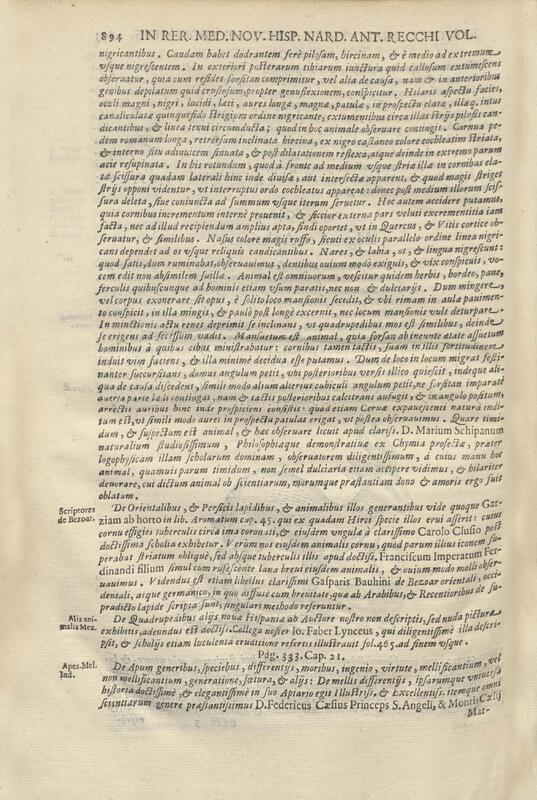 894 IN RER. MED. NOV. HISP. NARD. ANT. RECCHI VOL.
nigricantibus. Caudam habet dodrantem ferè pilosam, hircinam, & è medio ad extremum
vsque nigrescentem. In exteriori posterarum tibiarum iunctura quid callosum extumescens
obseruatur, quia cum residet forsitan comprimitur, vel alia de causa, nam & in anterioribus
genibus depilatum quid crustosum, propter genuflexionem, conspicitur. Hilaris aspectu facies,
oculi magni, nigri, lucidi, læti, aures longæ, magnæ, patulæ, in prospectu elatæ, illæq. intus
canaliculatæ quinquefido strigium ordine nigricante, extumentibus circa illas strijs pilosis can-
dicantibus, & linea tenui circumducta; quod in hoc animale obseruare contingit. Cornua pe-
dem romanum longa, retrorsum inclinata hircina, ex nigro castaneo colore cochleatim striata,
& interno situ adinuicem sinuata, & post dilatationem reflexa, atque deinde in extremo parum
acie resupinata. In bis rotundum, quod à fronte ad medium vsque stria illa in cornibus ela-
ta scissura quadam laterali hinc inde diuisa, aut intersecta apparent, & quod magis striges
strijs opponi videntur, vt interruptus ordo cochleatus appareat: donec post medium illorum scis-
sura deleta, siue coniuncta ad summum vsque iterum seruetur. Hoc autem accidere putamus,
quia cornibus incrementum internè prouenit, & siccior externa pars veluti excrementitia iam
facta, nec ad illud recipiendum amplius apta, findi oportet, vt in Quercus, & Vitis cortice ob-
seruatur, & similibus. Nasus colore magis ruffo, sicuti ex oculis parallelo ordine linea nigri-
cans dependet ad os vsque reliquis candicantibus. Nares, & labia, os, & lingua nigrescunt:
quod satis, dum ruminabat, obseruauimus, dentibus ouium modo exiguis, & vix conspicuis, vo-
cem edit non absimilem suillæ. Animal est omniuorum, vescitur quidem herbis, hordeo, pane,
ferculis quibuscunque ad hominis etiam vsum paratis, nec non & dulciarijs. Dum mingere,
vel corpus exonerare illi opus, è solito loco mansionis secedit, & vbi rimam in aulæ pauimen-
to conspicit, in illa mingit, & paulò post longè excernit, nec locum mansionis vult deturpare.
In minctionis actu renes deprimit se inclinans, vt quadrupedibus mos est similibus, deinde
se erigens ad secessum vadit. Mansuetum est animal, quia forsan ab ineunte ætate assuetum
hominibus à quibus cibus ministrabatur: cornibus tamen tactis, suam in illis fortitudinem
induit vim faciens, & illa minimè decidua esse putamus. Dum de loco in locum migrat festi-
nanter succursitans, domus angulum petit, vbi posterioribus versis illico quiescit, indeque ali-
qua de causa discedens, simili modo alium alterius cubiculi angulum petit, ne forsitan imparatè
auersa parte lædi contingat, nam & tactis posterioribus calcitrans aufugit, & in angulo positum,
arrectis auribus hinc inde prospiciens consistit: quod etiam Ceruæ expauescenti natura indi-
tum est, vt simili modo aures in prospectu patulas erigat, vt posita obseruauimus. Quare timi-
dum, & suspectum est animal, & hæc obseruare licuit apud clariss. D. Marium Schipanum
naturalium studiosissimum, Philosophiæque demonstratiuæ ex Chymia profectæ, præter
logophysicam illam scholarum dominam, obseruatorem diligentissimum, à cuius manu hoc
animal, quamuis parum timidum, non semel dulciaria etiam accipere vidimus, & hilariter
deuorare, cui dictum animal ob scientiarum, morumque præstantiam dono & amoris ergo fuit
oblatum.
Scriptores de Bezoar.
De Orientalibus, & Persicis lapidibus, & animalibus illos generantibus vide quoque Gar-
ziam ab horto in lib. Aromatum cap. 45. qui ex quadam Hirci specie illos erui asserit: cuius
cornu effigies tuberculis circa ima coronati, & eiusdem vngulæ à clarissimo Carolo Clusio post
doctissima scholia exhibetur. Verum nos eiusdem animalis cornu, quod parum illius iconem su-
perabat striatum obliquè, sed absque tuberculis illis apud doctiss. Franciscum Imperatum Fer-
dinandi filium simul cum rufescente lana breui eiusdem animalis, & ouium modo molli obser-
uauimus. Videndus est etiam libellus clarissimi Gasparis Bauhini de Bezoar orientali, occi-
dentali, atque germanico, in quo diffusè cum breuitate, quæ ab Arabibus, & Recentioribus de su-
pradicto lapide scripta sunt, singulari methodo referuntur.
Alia animalia Mex.
De Quadrupedibus alijs nouæ Hispaniæ ab Auctore nostro non descriptis, sed nuda pictura
exhibitis, adeundus est doctiss. Collega noster Io. Faber Lynceus, qui diligentissimè illa descri-
psit, & scholijs etiam luculenta eruditione refertis illustrauit fol. 465. ad finem vsque.
Pag. 333. Cap. 21.
Apes. Mel. Ind.
De Apum generibus, speciebus, differentijs, moribus, ingenio, virtute, mellificantium, vel
non mellificantium, generatione, fætura, & alijs: De mellis differentijs, ipsarumque vniuersa
historia doctissimè, & elegantissimè in suo Apiario egit Illustriss. & Excellentiss. itemque omni
scientiarum genere præstantissimus D. Federicus Cæsius Princeps S. Angeli, & Montis Cælij
Mar-